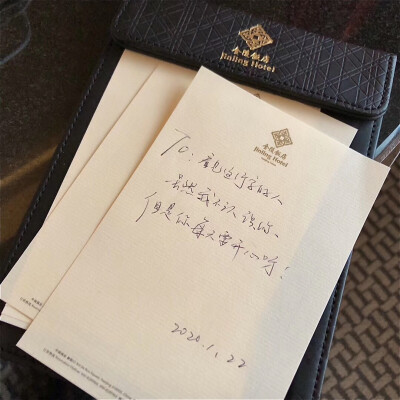 金陵飯店
Jinling Hotel
金陵飯店
Jinling Hotel
To: 看见这行字的人
虽然我不认识你、
但是你每天要开心呀!
2020.1.22